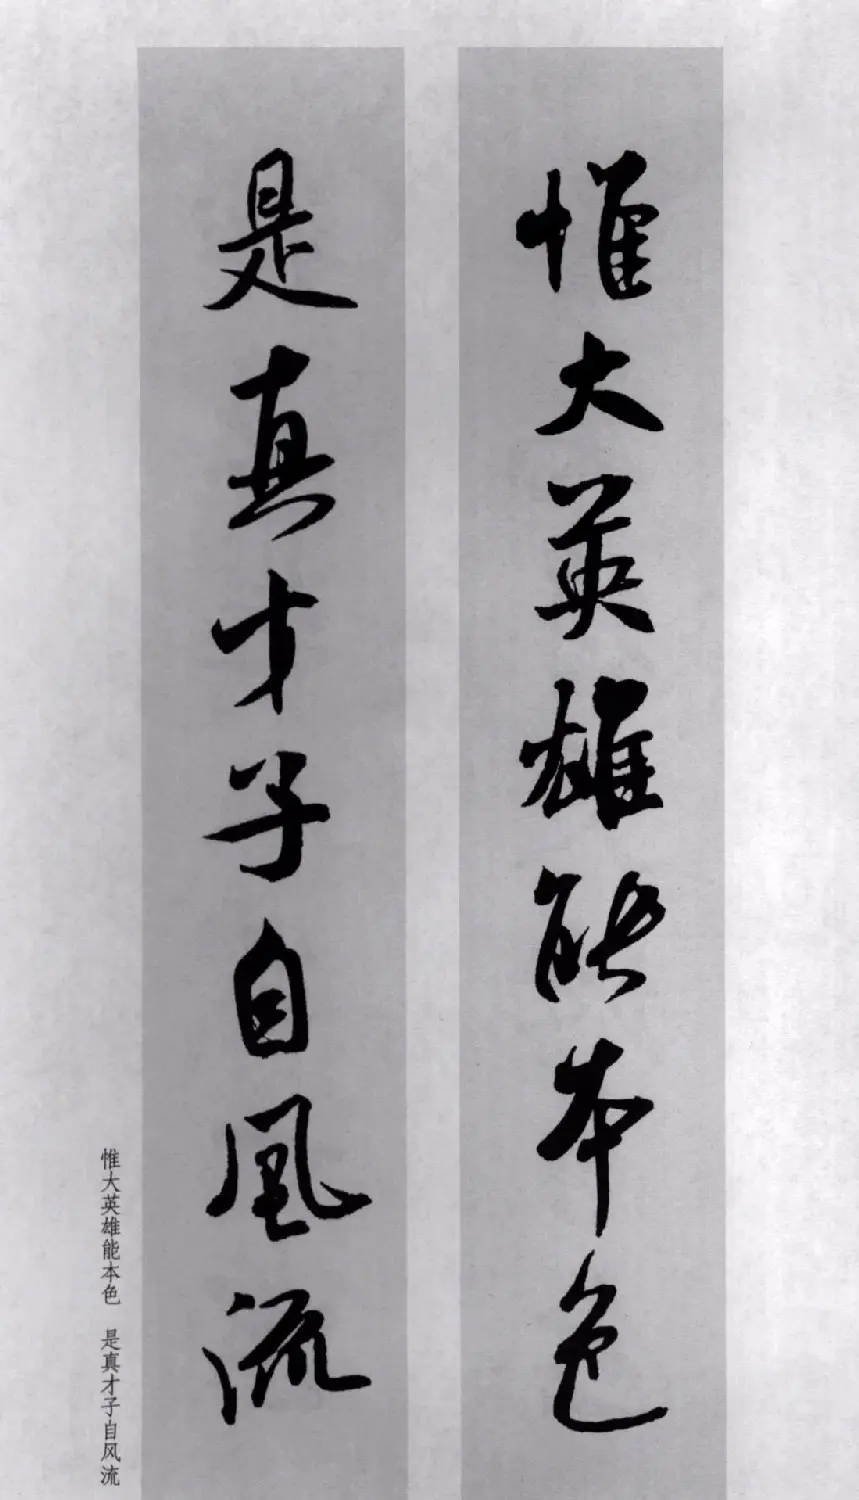 惟大英雄能本色
是真才子自风流
惟大英雄能本色 是真才子自风流